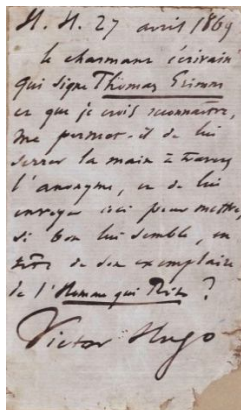 H. H. 27 avril 1869
le charmant écrivain
qui signe Thomas Grimm
et que je crois reconnaître,
me permet-il de lui
serrer la main à travers
l'anonyme, et de lui
envoyer ceci pour mettre,
si bon lui semble, en
tête de son exemplaire
de l'Homme qui Rit ?
Victor Hugo